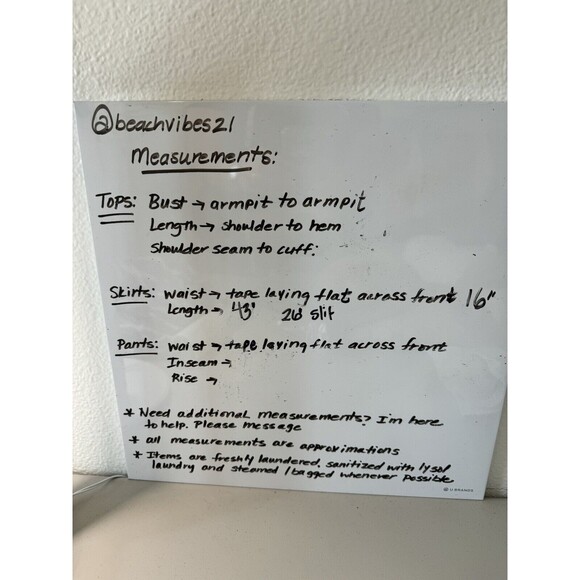 @beachvibes21
Measurements:
Tops: Bust → armpit to armpit
Length → shoulder to hem
Shoulder seam to cuff:
Skirts: waist → tape laying flat across front 16"
Length → 43" slit
Pants: waist → tape laying flat across front
Inseam →
Rise →
* Need additional measurements? I'm here
to help. Please message
* all measurements are approximations
* Items are freshly laundered, sanitized with lysol
laundry and steamed / bagged whenever possible
U BRANDS